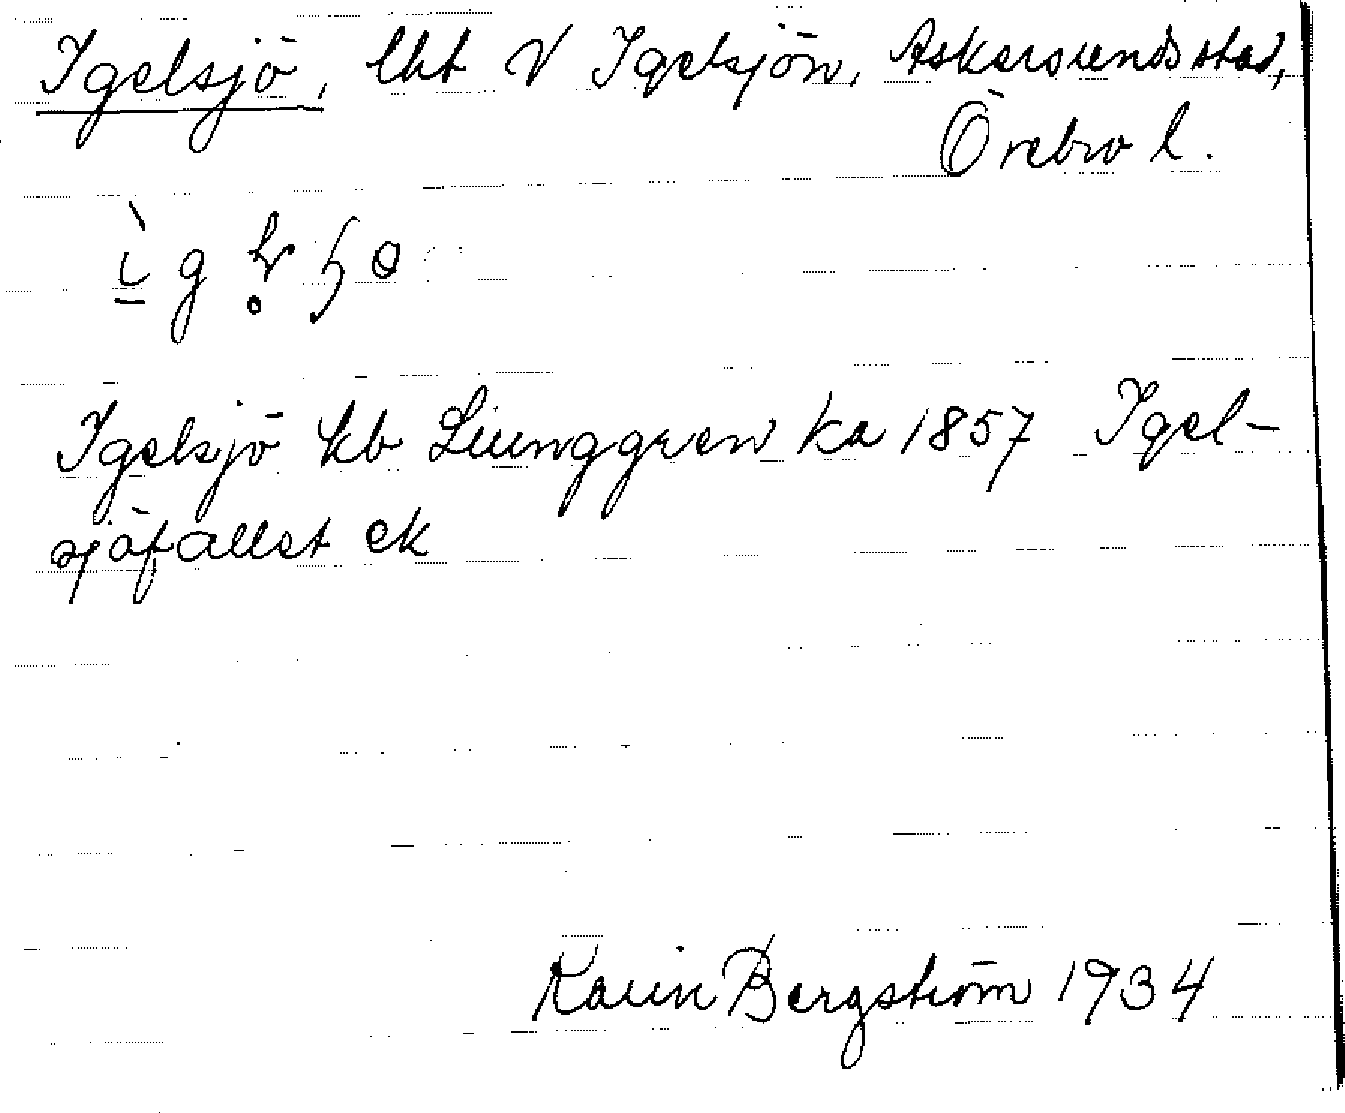 Igelsjö, lht V Igelsjön, Askersunds stad,
Örebro l.
Igelsjö kb Liunggren ka 1857 Igel-
sjöfallet ek
Karin Bergström 1934